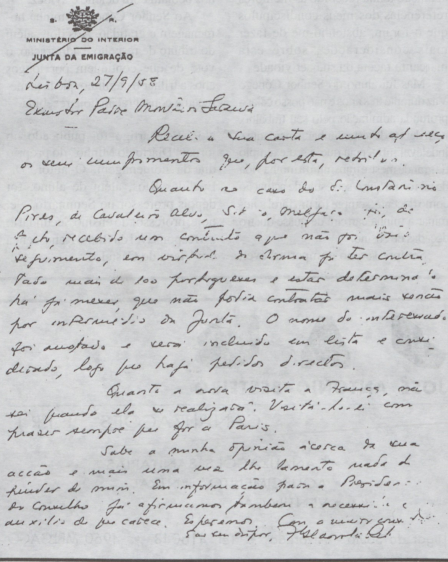 S. R.
MINISTÉRIO DO INTERIOR
JUNTA DA EMIGRAÇÃO
Lisboa, 27/9/58
Padre
Recebi a sua carta e muito
os seus cumprimentos que, por esta, retribuo.
Quanto ao caso do Sr. Constantino
Pires, de Cavaleiro Alvo,
recebido um contrato a que não foi dado
seguimento, em virtude da firma já ter contra
tado mais de 100 portugueses e estar determinado
há já meses, que não podia contratar mais senão
por intermédio da Junta. O nome do interessado
foi anotado e será incluído em lista e consi
derado, logo que haja pedidos directos.
Quanto a nova visita a França, não
sei quando ela se realizará. com
prazer sempre que for a Paris.
Sabe a minha opinião àcerca da sua
acção e mais uma vez lhe lamento nada
de mim. Em informação para a
do Conselho já afirmamos também a
auxílio de que carece. Esperemos. Com a maior